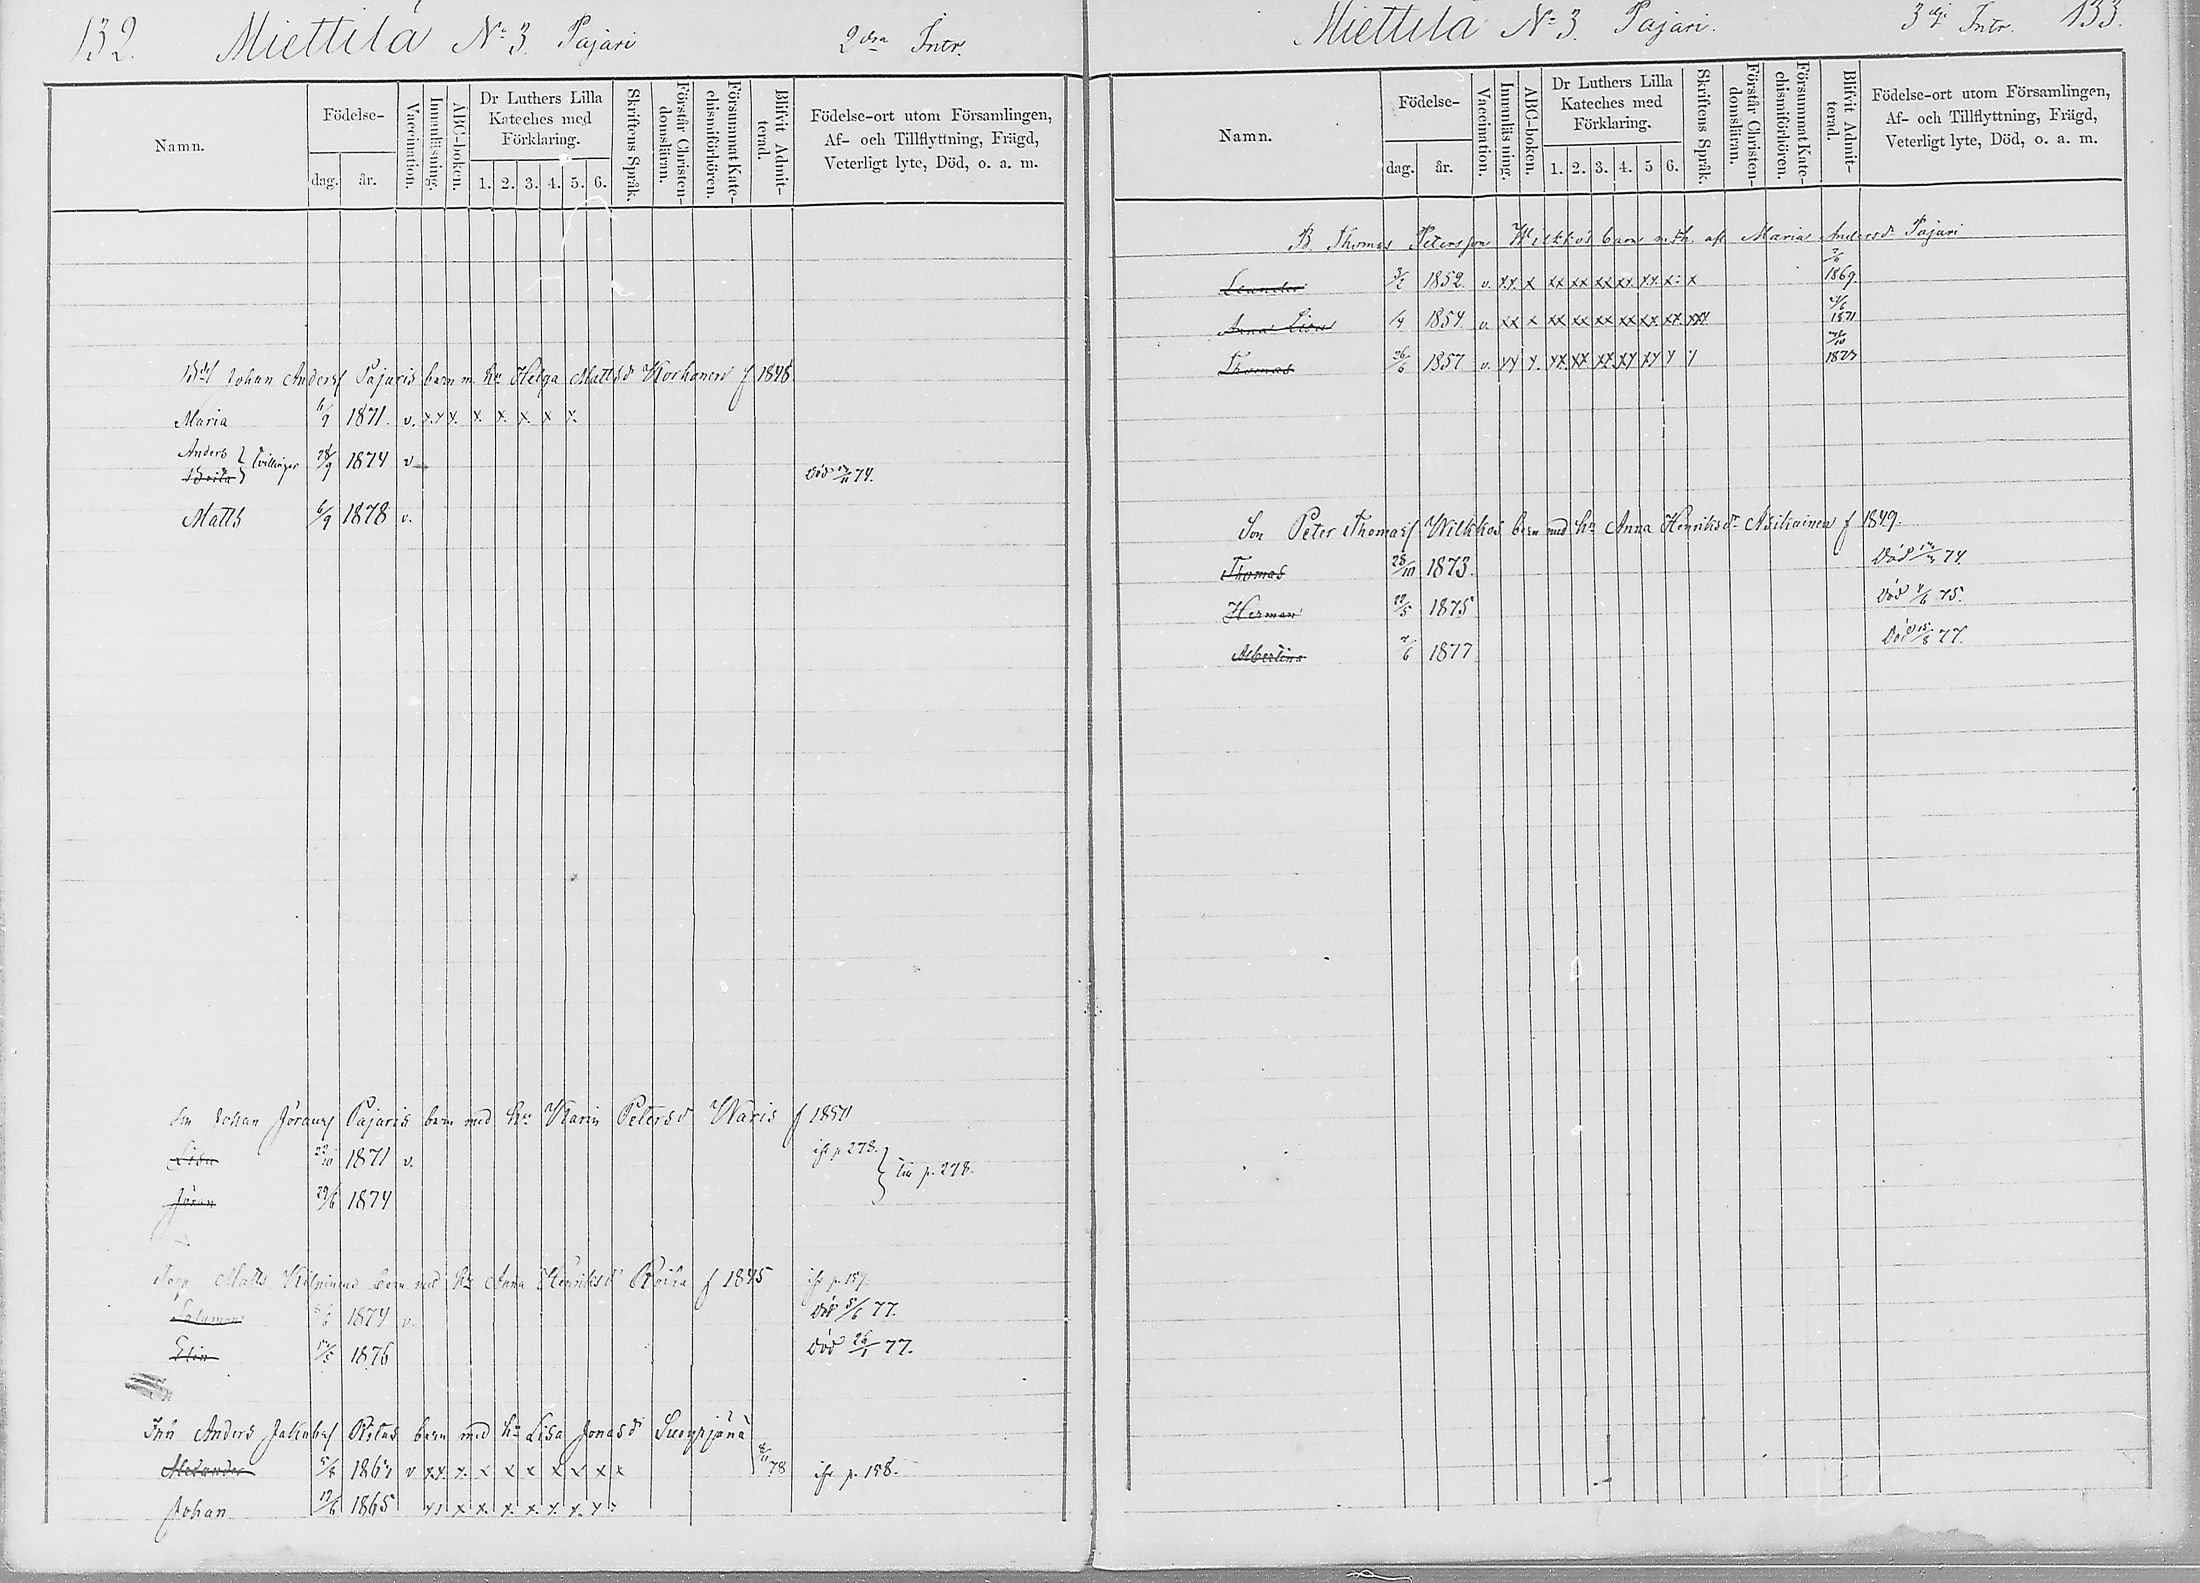 132. Miettilä No 3. Pajari 2dra Intr.
Namn. Födelse- dag. år. Vaccination. Innanläsning. ABC-boken. Dr Luthers Lilla Kateches med Förklaring. 1. 2. 3. 4. 5. 6. Skriftens Språk. Förstår Christen-domsläran. Försummat Kate-chismiförhören. Blifvit Admit-terad. Födelse-ort utom Församlingen, Af- och Tillflyttning, Frägd, Veterligt lyte, Död, o. a. m.
Johan Andersf Pajaris barn m. hu Helga Mattsd Korhonen f 1848
Maria 1871. v. x x x. x. x. x. x x.
Anders } tvillinger 28/9 1874 v
Död 74.
Matts 6/9 1878 v.
Johan Göransf Pajaris barn med hu Karin Petersd Waris f 1850
Lisa 1871 v. ifr p 278. } till p. 278.
Göran 29/6 1874
Matts barn med hu Anna Henriksd f 1845
1874 v. Död 5/6 77.
Elin 1876 Död 77.
Inh Anders Jakobsf barn med hu Lisa Jonasd
Alexander v x x. x. x x x x x x x 78 ifr p. 158.
Johan 17/6 1865 x x x x. x. x. x. x. x
Miettilä No 3. Pajari. 3dje Intr. 133.
Namn. Födelse- dag. år. Vaccination. Innanläsning. ABC-boken. Dr Luthers Lilla Kateches med Förklaring. 1. 2. 3. 4. 5 6. Skriftens Språk. Förstår Christen-domsläran. Försummat Kate-chismiförhören. Blifvit Admit-terad. Födelse-ort utom Församlingen, Af- och Tillflyttning, Frägd, Veterligt lyte, Död, o. a. m.
B. Thomas Petersson Wilkkos barn m. h. afl Maria Andersd. Pajari
Leander 1852. v. xx x xx xx xx xx xx x x 1869.
Anna Lisa 1854 v. xx x xx xx xx xx xx xx xxx 1871
Thomas 26/6 1857 v. xx x. xx xx xx xx xx x x
Son Peter Thomasf Wilkkos barn med hu Anna Henriksdr Asikainen f 1849.
Thomas 28/10 1873. Död 74.
Herman 1875 Död 75.
Albertina 1877 Död 15/8 77.